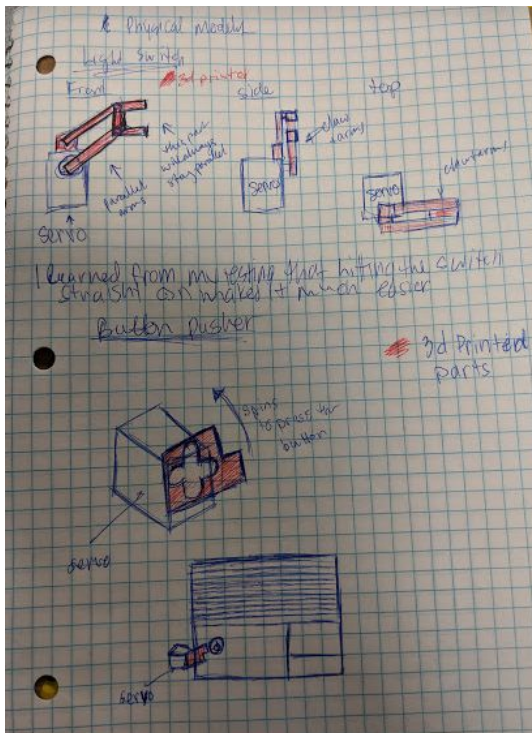 Physical models
Light Switch
3d printed
Front
Side
top
this part
will always
stay parallel
parallel
arms
Servo
claw
arms
servo
servo
claw arms
I learned from my testing that hitting the switch
straight on makes it much easier
Button pusher
3d Printed
parts
spins
to press the
button
servo
servo